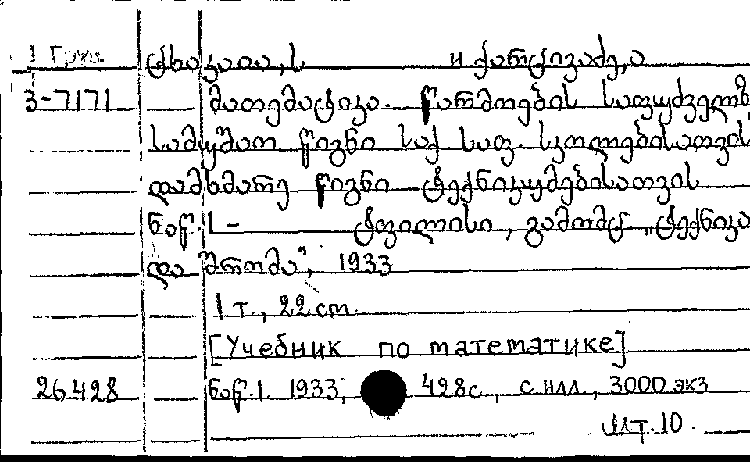 1 Груз. ცხაკაია, ს и ქარცივაძე, ა
3-7171 მათემატიკა. წარმოების საფუძველზ
სამუშაო წიგნი საქ საფ. სკოლებისათვის
დამხმარე წიგნი ტექნიკუმებისათვის
ნაწ. I- ტფილისი, გამომც. „ტექნიკა
და შრომა", 1933
1 т., 22 cm.
[Учебник по математике]
26428 ნაწ. I. 1933, 428с., с илл., 3000 экз
Мт. 10.